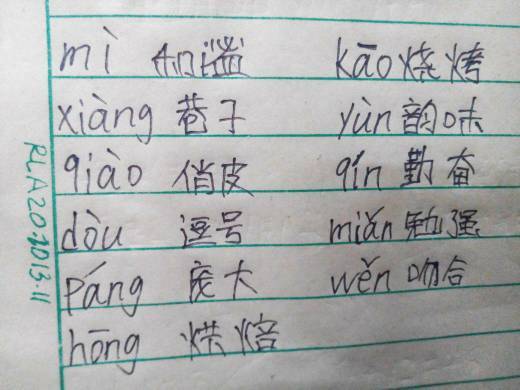 mì kāo 烧烤
xiàng 巷子 yùn 韵味
qiào 俏皮 qín 勤奋
dòu 逗号 miǎn 勉强
páng 庞大 wěn 吻合
hōng 烘焙
RLA20.2013.11